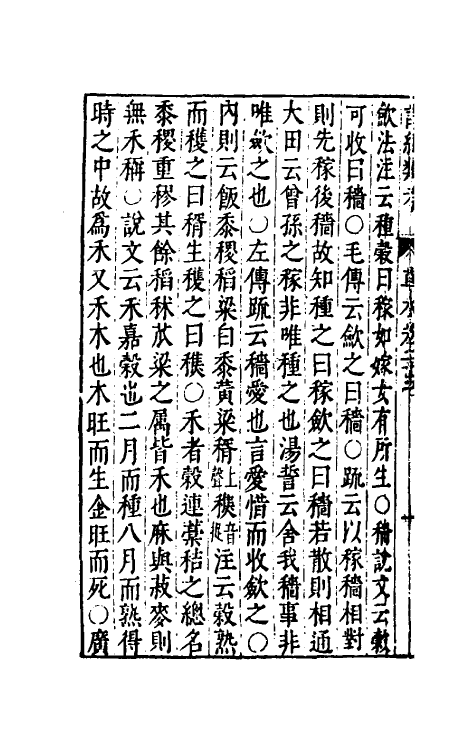 斂法注云種穀曰稼如嫁女有所生○穡說文云穀
可收曰穡○毛傳云斂之曰穡○疏云以稼穡相對
則先稼後穡故知種之曰稼斂之曰穡若散則相通
大田云曾孫之稼非唯種之也湯誓云舍我穡事非
唯斂之也○左傳疏云穡愛也言愛惜而收斂之○
內則云飯黍稷稻粱白黍黃粱稰上聲穛音捉注云穀熟
而穫之曰稰生穫之曰穛○禾者穀連藁秸之總名
黍稷重穋其餘稻秫苽粱之屬皆禾也麻與菽麥則
無禾稱○說文云禾嘉穀也二月而種八月而熟得
時之中故爲禾又禾木也木旺而生金旺而死○廣